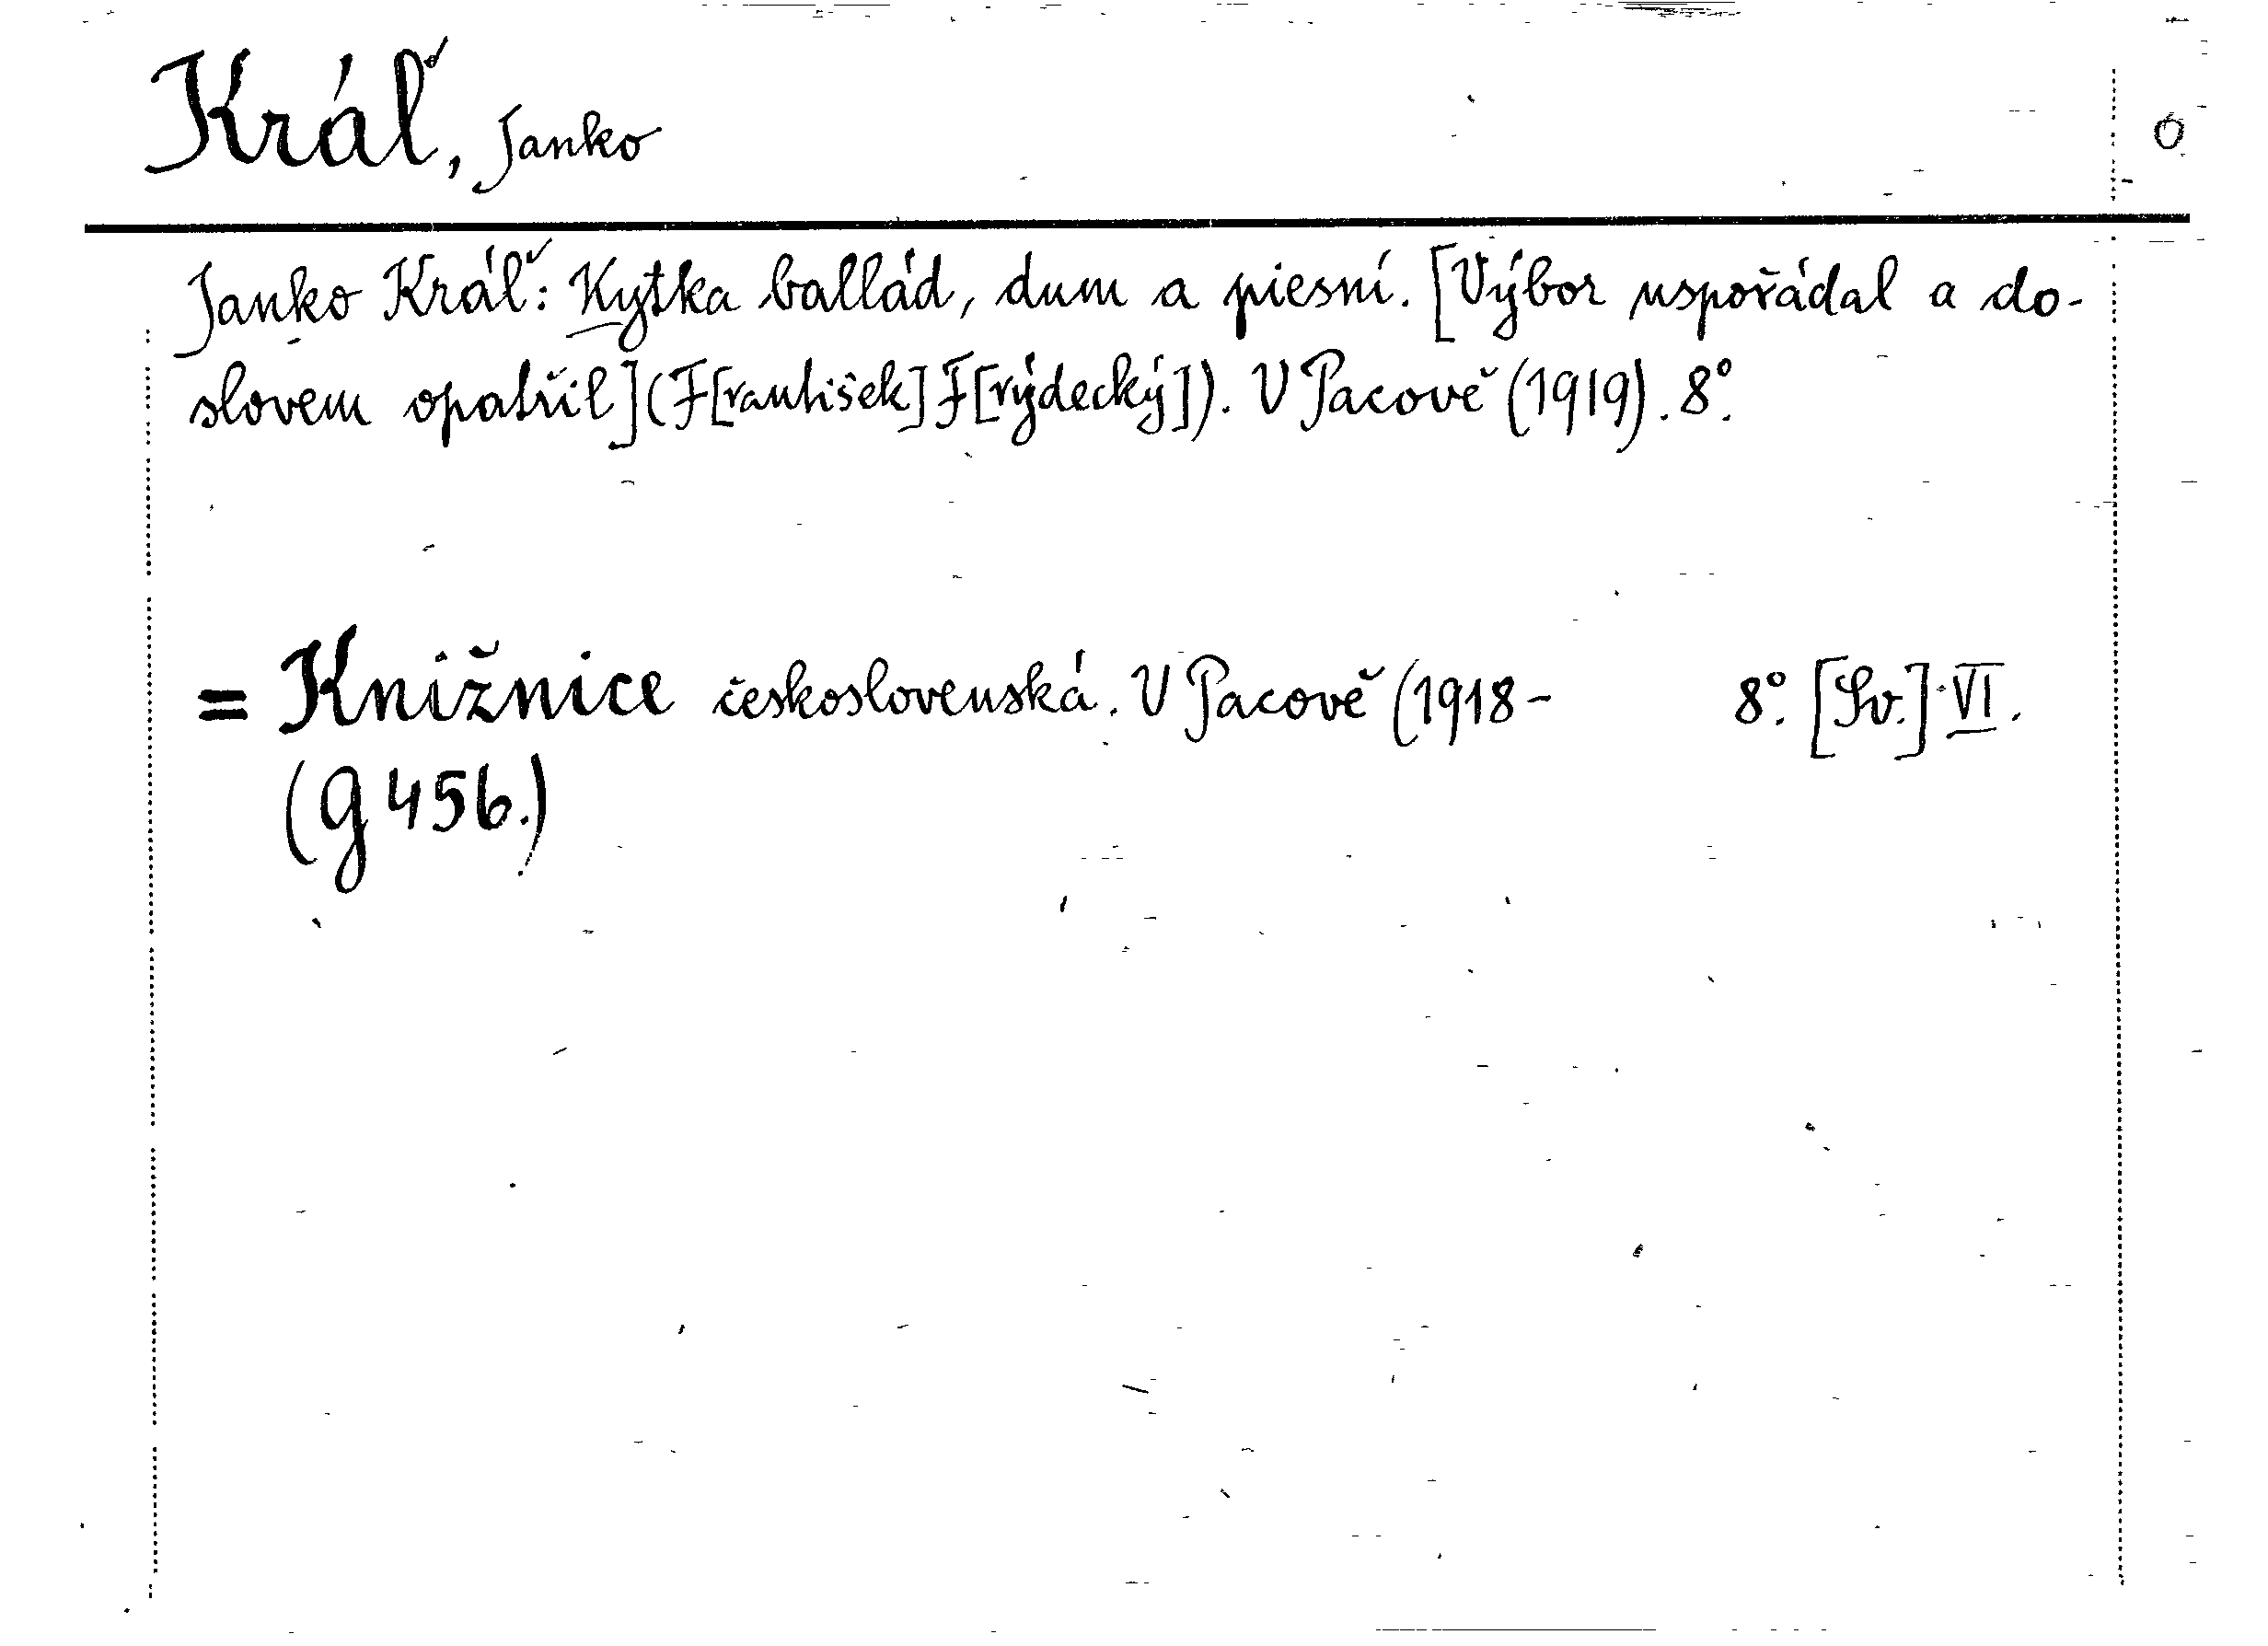 Kráľ, Janko
Janko Kráľ: Kytka ballád, dum a piesní. [Výbor uspořádal a do-
slovem opatřil] (F[rantišek] F[rýdecký]). V Pacově (1919). 8°.
= Knižnice československá. V Pacově (1918- 8°. [Sv.] VI.
(g 456.)